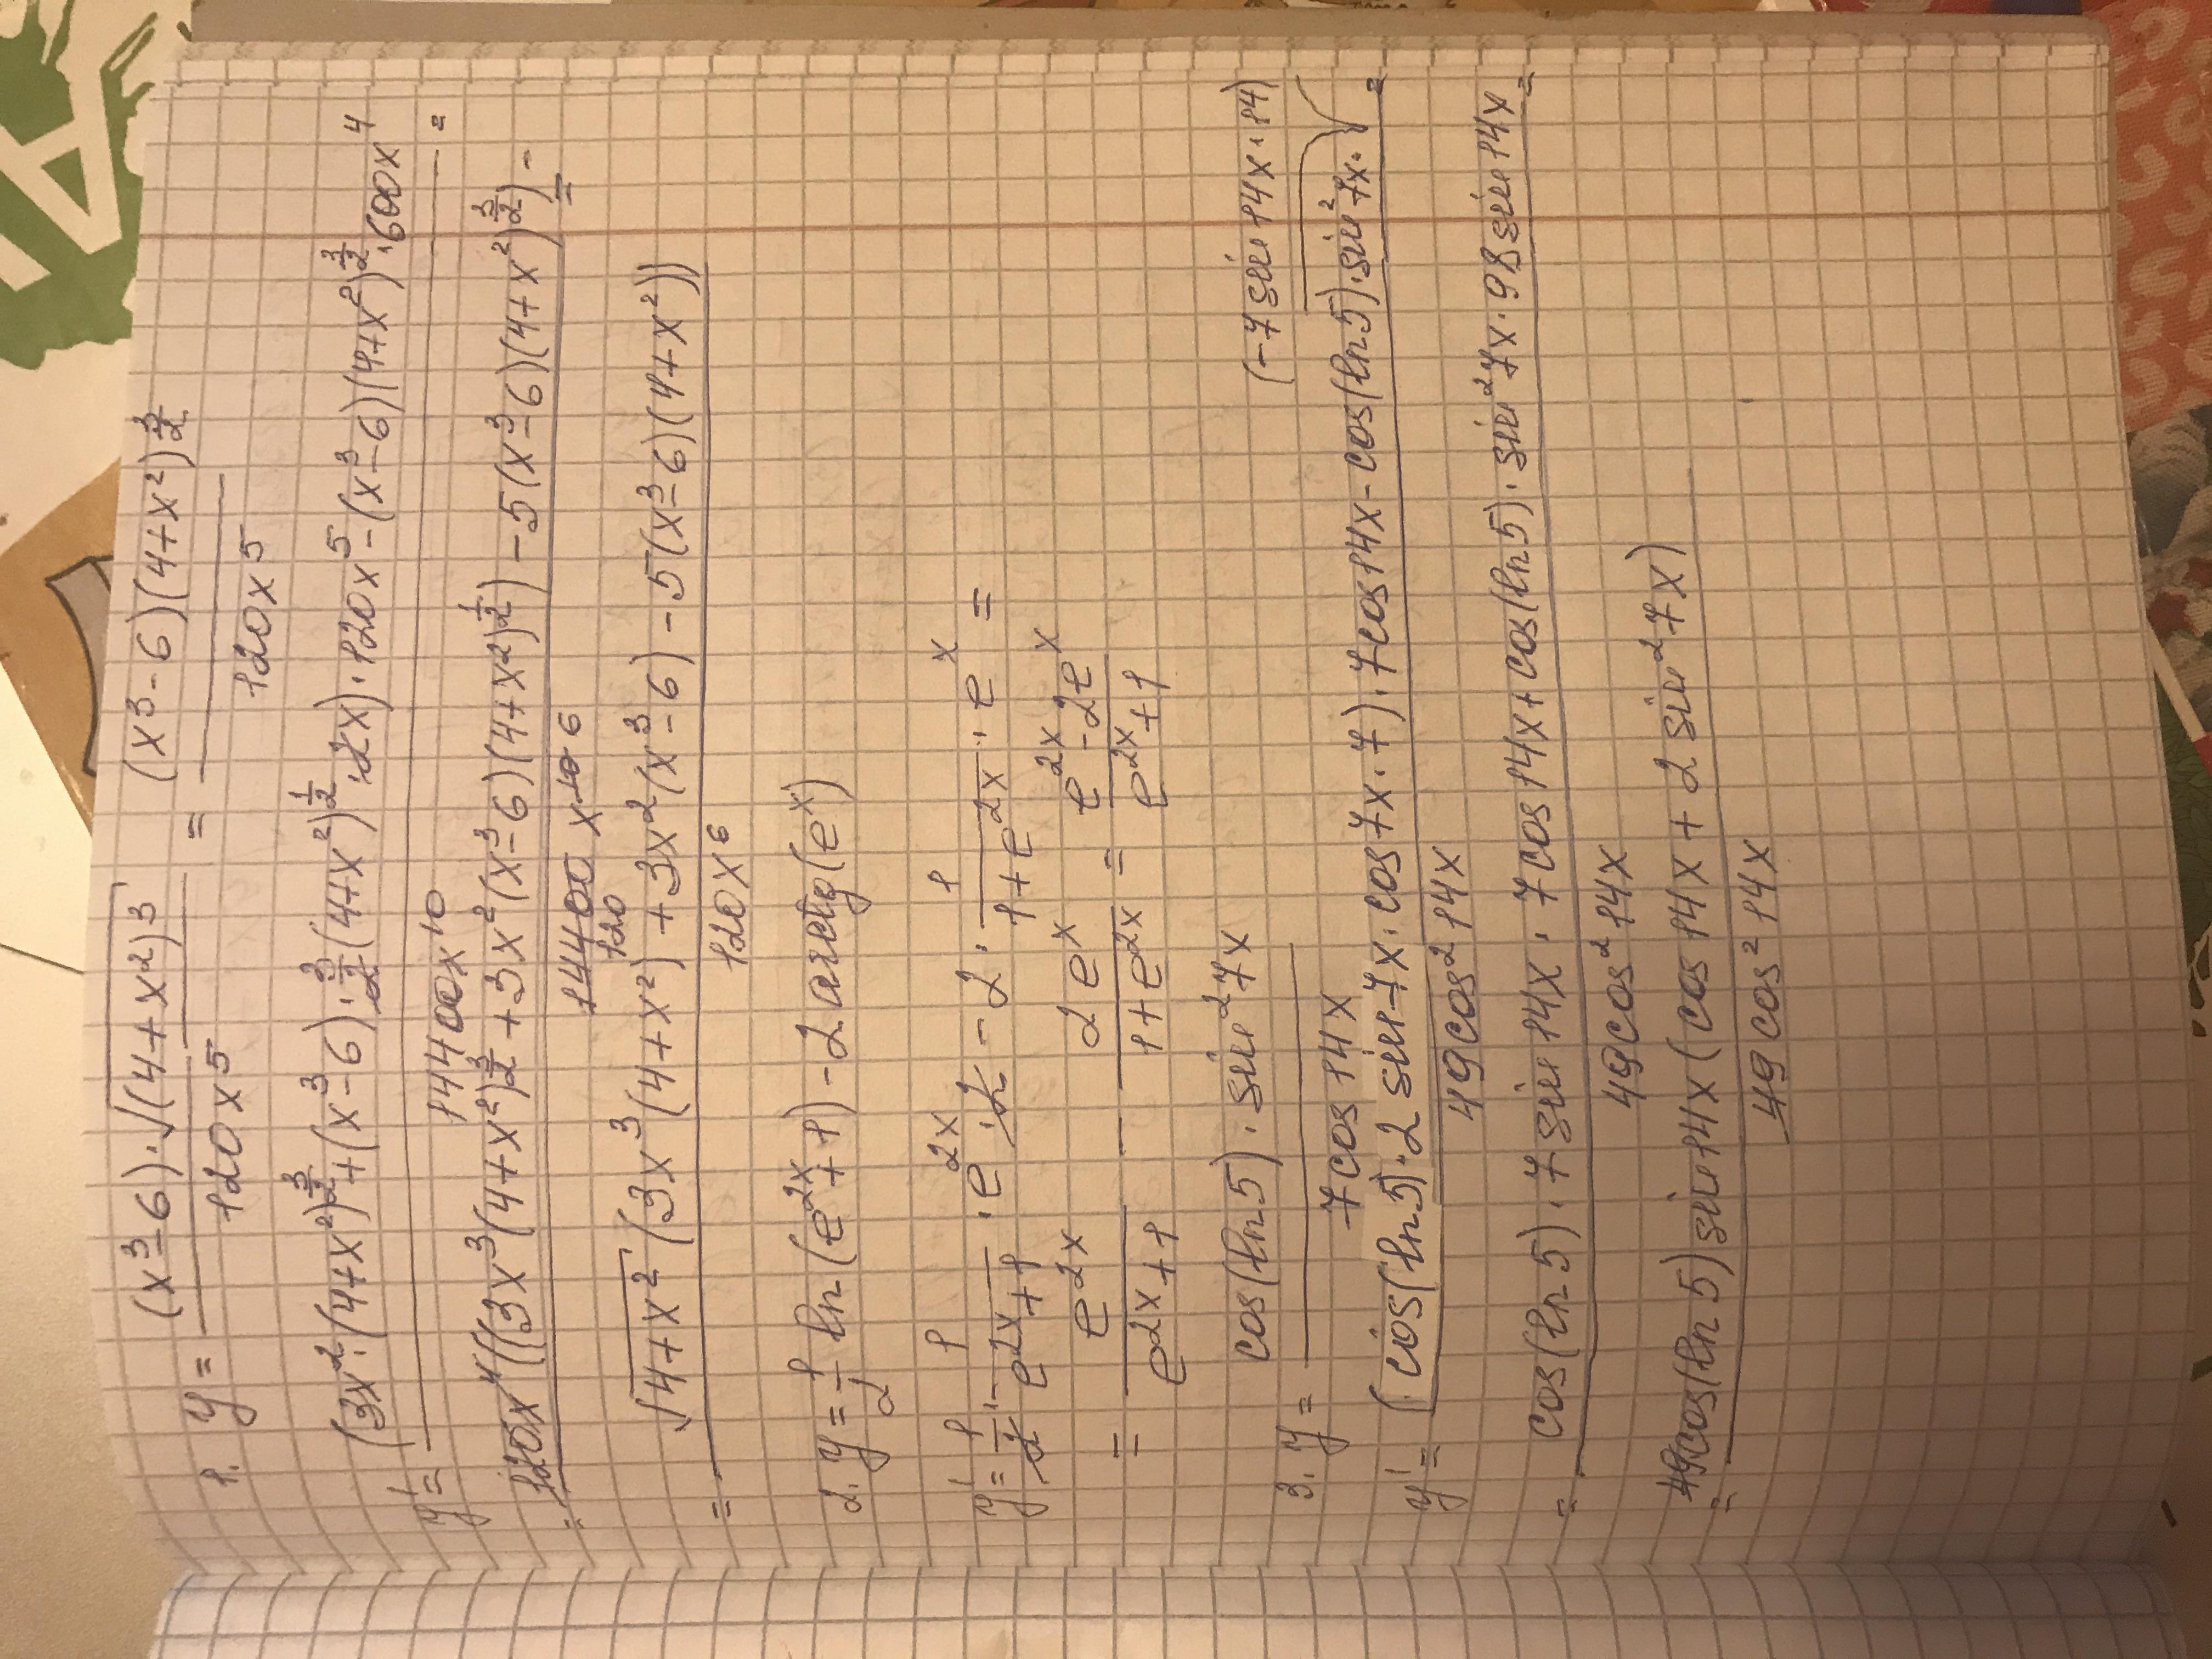 1. y = (x³-6)·√(4+x²)³ / 120x⁵ = (x³-6)(4+x²)^(3/2) / 120x⁵
y' = (3x²·(4+x²)^(3/2) + (x³-6)·3/2(4+x²)^(1/2)·2x)·120x⁵ - (x³-6)(4+x²)^(3/2)·600x⁴ / 14400x¹⁰ =
= 120x⁴((3x³(4+x²)^(3/2) + 3x²(x³-6)(4+x²)^(1/2)) - 5(x³-6)(4+x²)^(3/2)) / 14400 x¹⁰ 120 6 =
= √(4+x²) (3x³(4+x²) + 3x²(x³-6) - 5(x³-6)(4+x²)) / 120x⁶
2. y = 1/2 ln(e^(2x)+1) - 2arctg(e^x)
y' = 1/2 · 1/(e^(2x)+1) · e^(2x) · 2 - 2 · 1/(1+e^(2x)) · e^x =
= e^(2x)/(e^(2x)+1) - 2e^x/(1+e^(2x)) = (e^(2x)-2e^x)/(e^(2x)+1)
3. y = cos(ln5)·sin²7x / 7cos14x
(-7sin14x·14)
y' = (cos(ln5)·2sin7x·cos7x·7)·7cos14x - cos(ln5)·sin²7x· / 49cos²14x =
= cos(ln5)·7sin14x·7cos14x + cos(ln5)·sin²7x·98sin14x / 49cos²14x =
= 49cos(ln5)sin14x(cos14x + 2sin²7x) / 49cos²14x